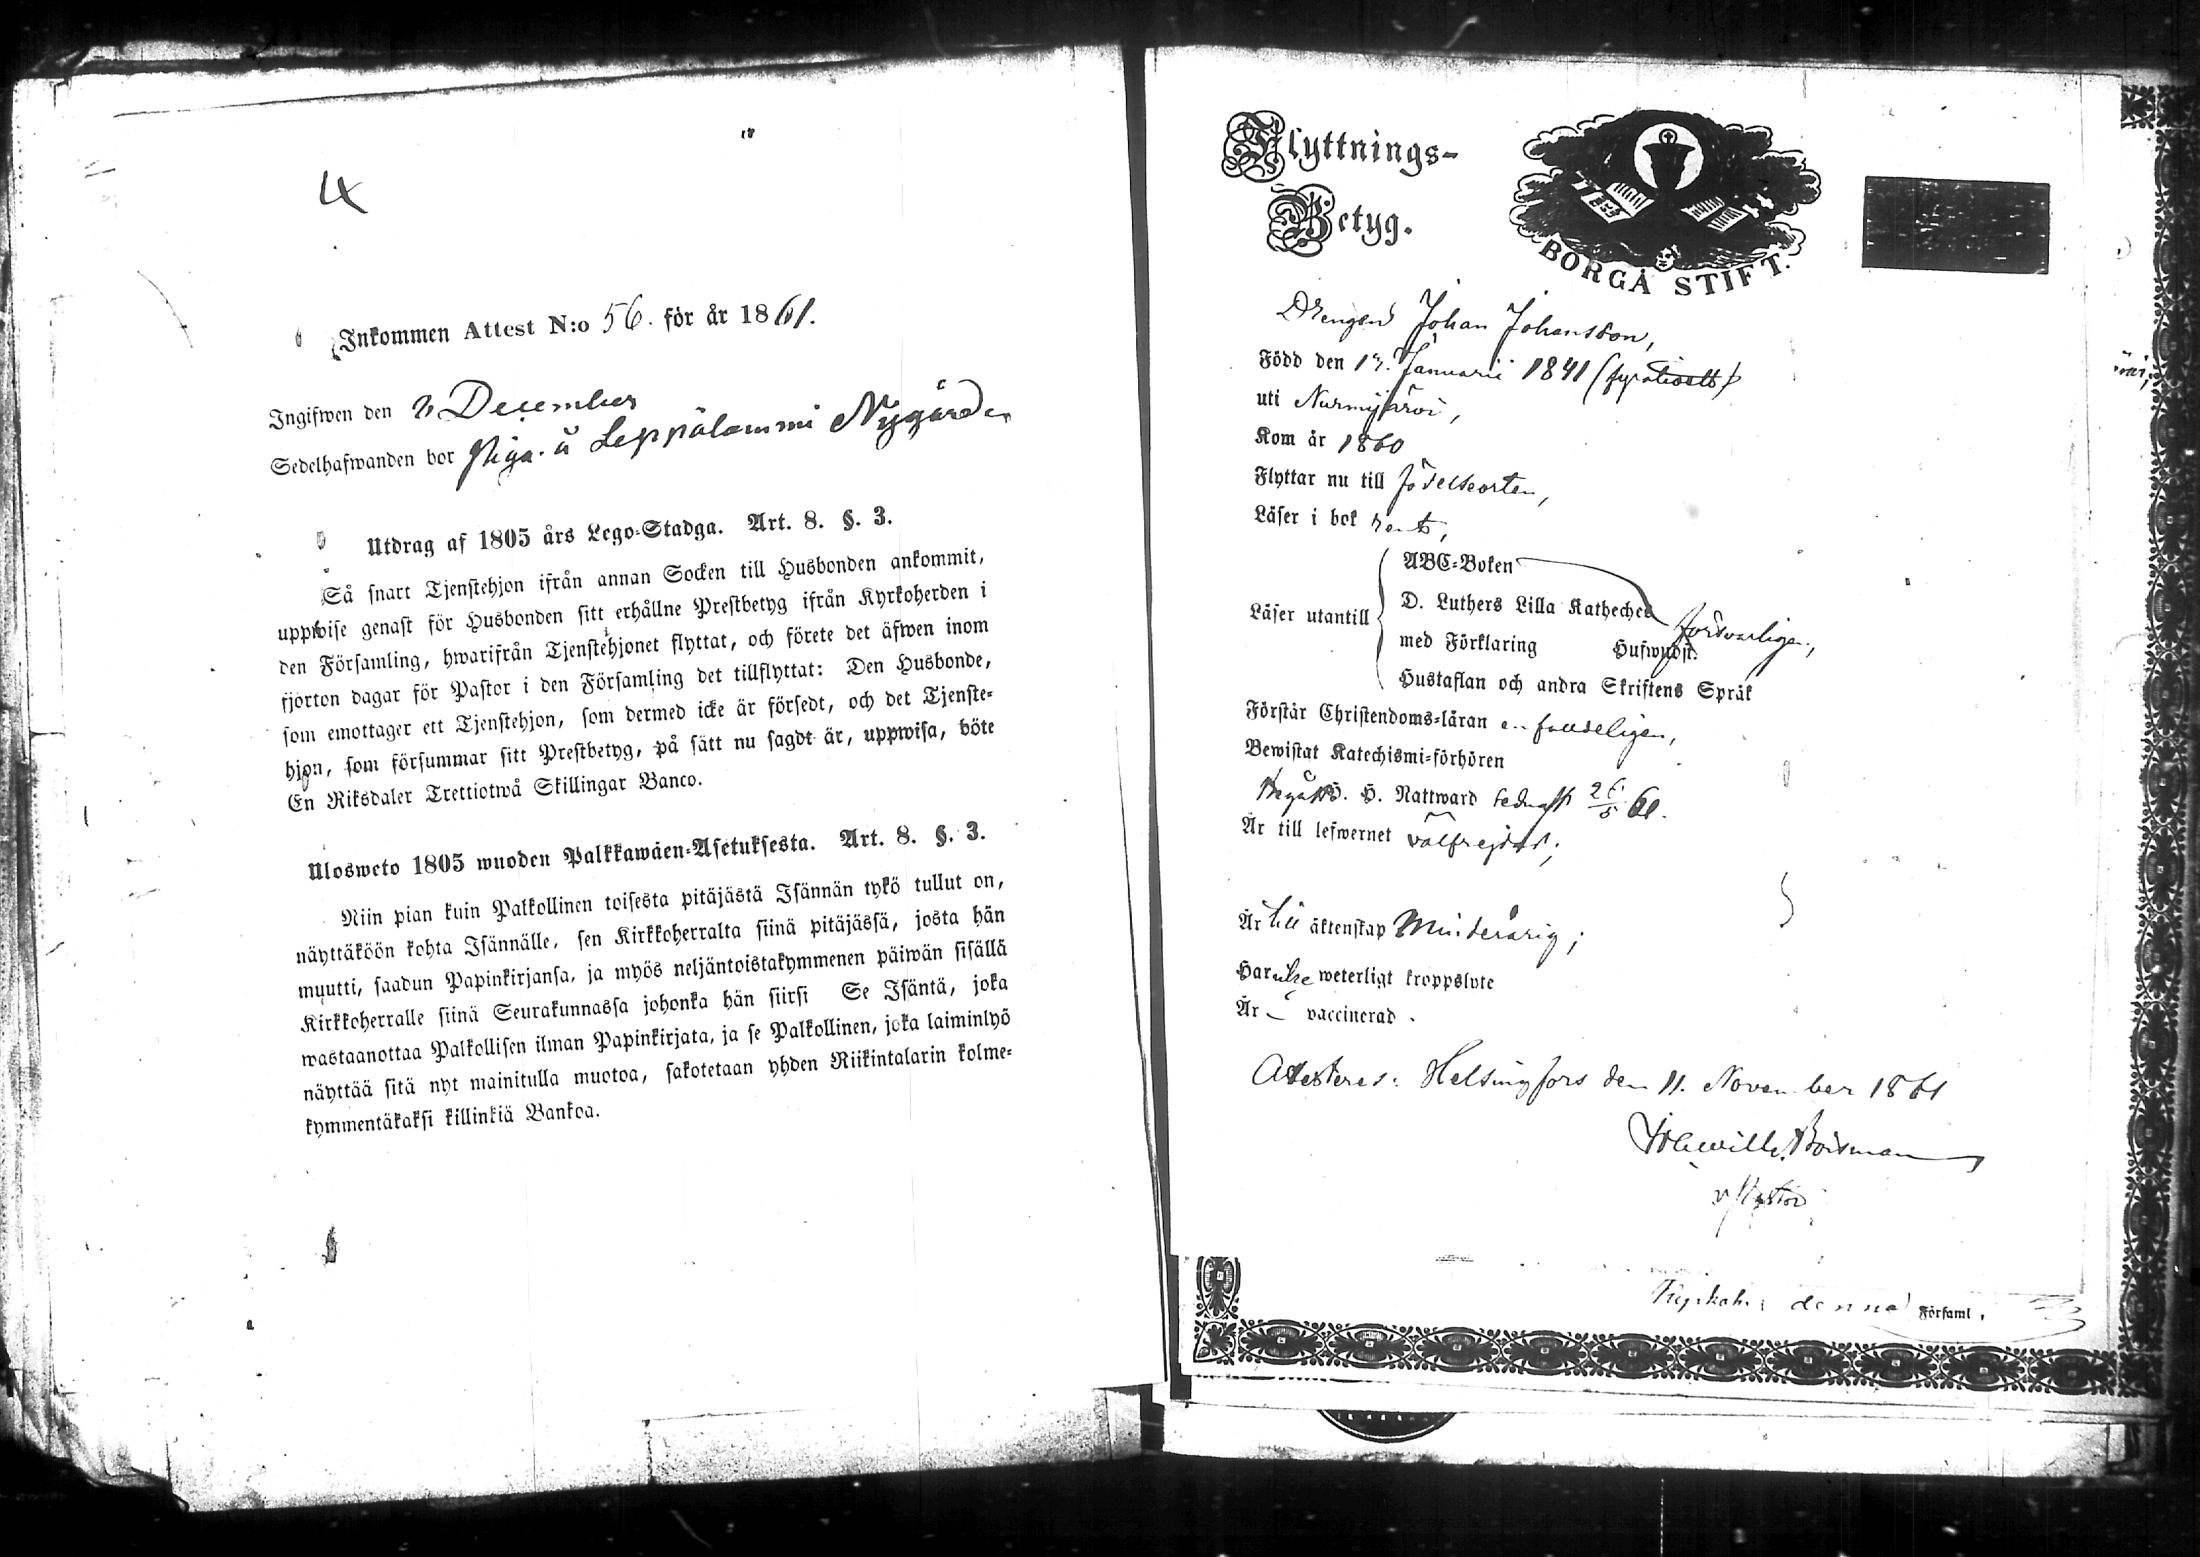 Inkommen Attest N:o 56. för år 1861.
Ingifwen den 2 December
Sedelhafwanden bor piga å Leppälammi Nygård
Utdrag af 1805 års Lego-Stadga. Art. 8. §. 3.
Så snart Tjenstehjon ifrån annan Socken till Husbonden ankommit,
uppwise genast för Husbonden sitt erhållne Prestbetyg ifrån Kyrkoherden i
den Församling, hwarifrån Tjenstehjonet flyttat, och förete det äfwen inom
fjorton dagar för Pastor i den Församling det tillflyttat: Den Husbonde,
som emottager ett Tjenstehjon, som dermed icke är försedt, och det Tjenste-
hjon, som försummar sitt Prestbetyg, på sätt nu sagdt är, uppwisa, böte
En Riksdaler Trettiotwå Skillingar Banco.
Ulosweto 1805 wuoden Palkkawäen-Asetuksesta. Art. 8. §. 3.
Niin pian kuin Palkollinen toisesta pitäjästä Isännän tykö tullut on,
näyttäköön kohta Isännälle, sen Kirkkoherralta siinä pitäjässä, josta hän
muutti, saadun Papinkirjansa, ja myös neljäntoistakymmenen päiwän sisällä
Kirkkoherralle siinä Seurakunnassa johonka hän siirsi Se Isäntä, joka
wastaanottaa Palkollisen ilman Papinkirjata, ja se Palkollinen, joka laiminlyö
näyttää sitä nyt mainitulla muotoa, sakotetaan yhden Riikintalarin kolme-
kymmentäkaksi killinkiä Bankoa.
Flyttnings-
Betyg.
BORGÅ STIFT.
Drengen Johan Johansson,
Född den 13. Januarii 1841 (fyratioett)
uti Nurmijärvi,
Kom år 1860
Flyttar nu till födelseorten,
Läser i bok rent,
ABC-Boken
Läser utantill D. Luthers Lilla Kateches
försvarligen,
med Förklaring Hufwudst.
Hustaflan och andra Skriftens Språk
Förstår Christendoms-läran enfaldeligen,
Bewistat Katechismi-förhören
Begått H. H. Nattward sednast 26/5 61.
Är till lefwernet välfrejdad;
Är till äktenskap Minderårig;
Har icke weterligt kroppslyte
Är vaccinerad.
Attesteras: Helsingfors den 11. November 1861
Boisman
v Pastor
denna Församl.